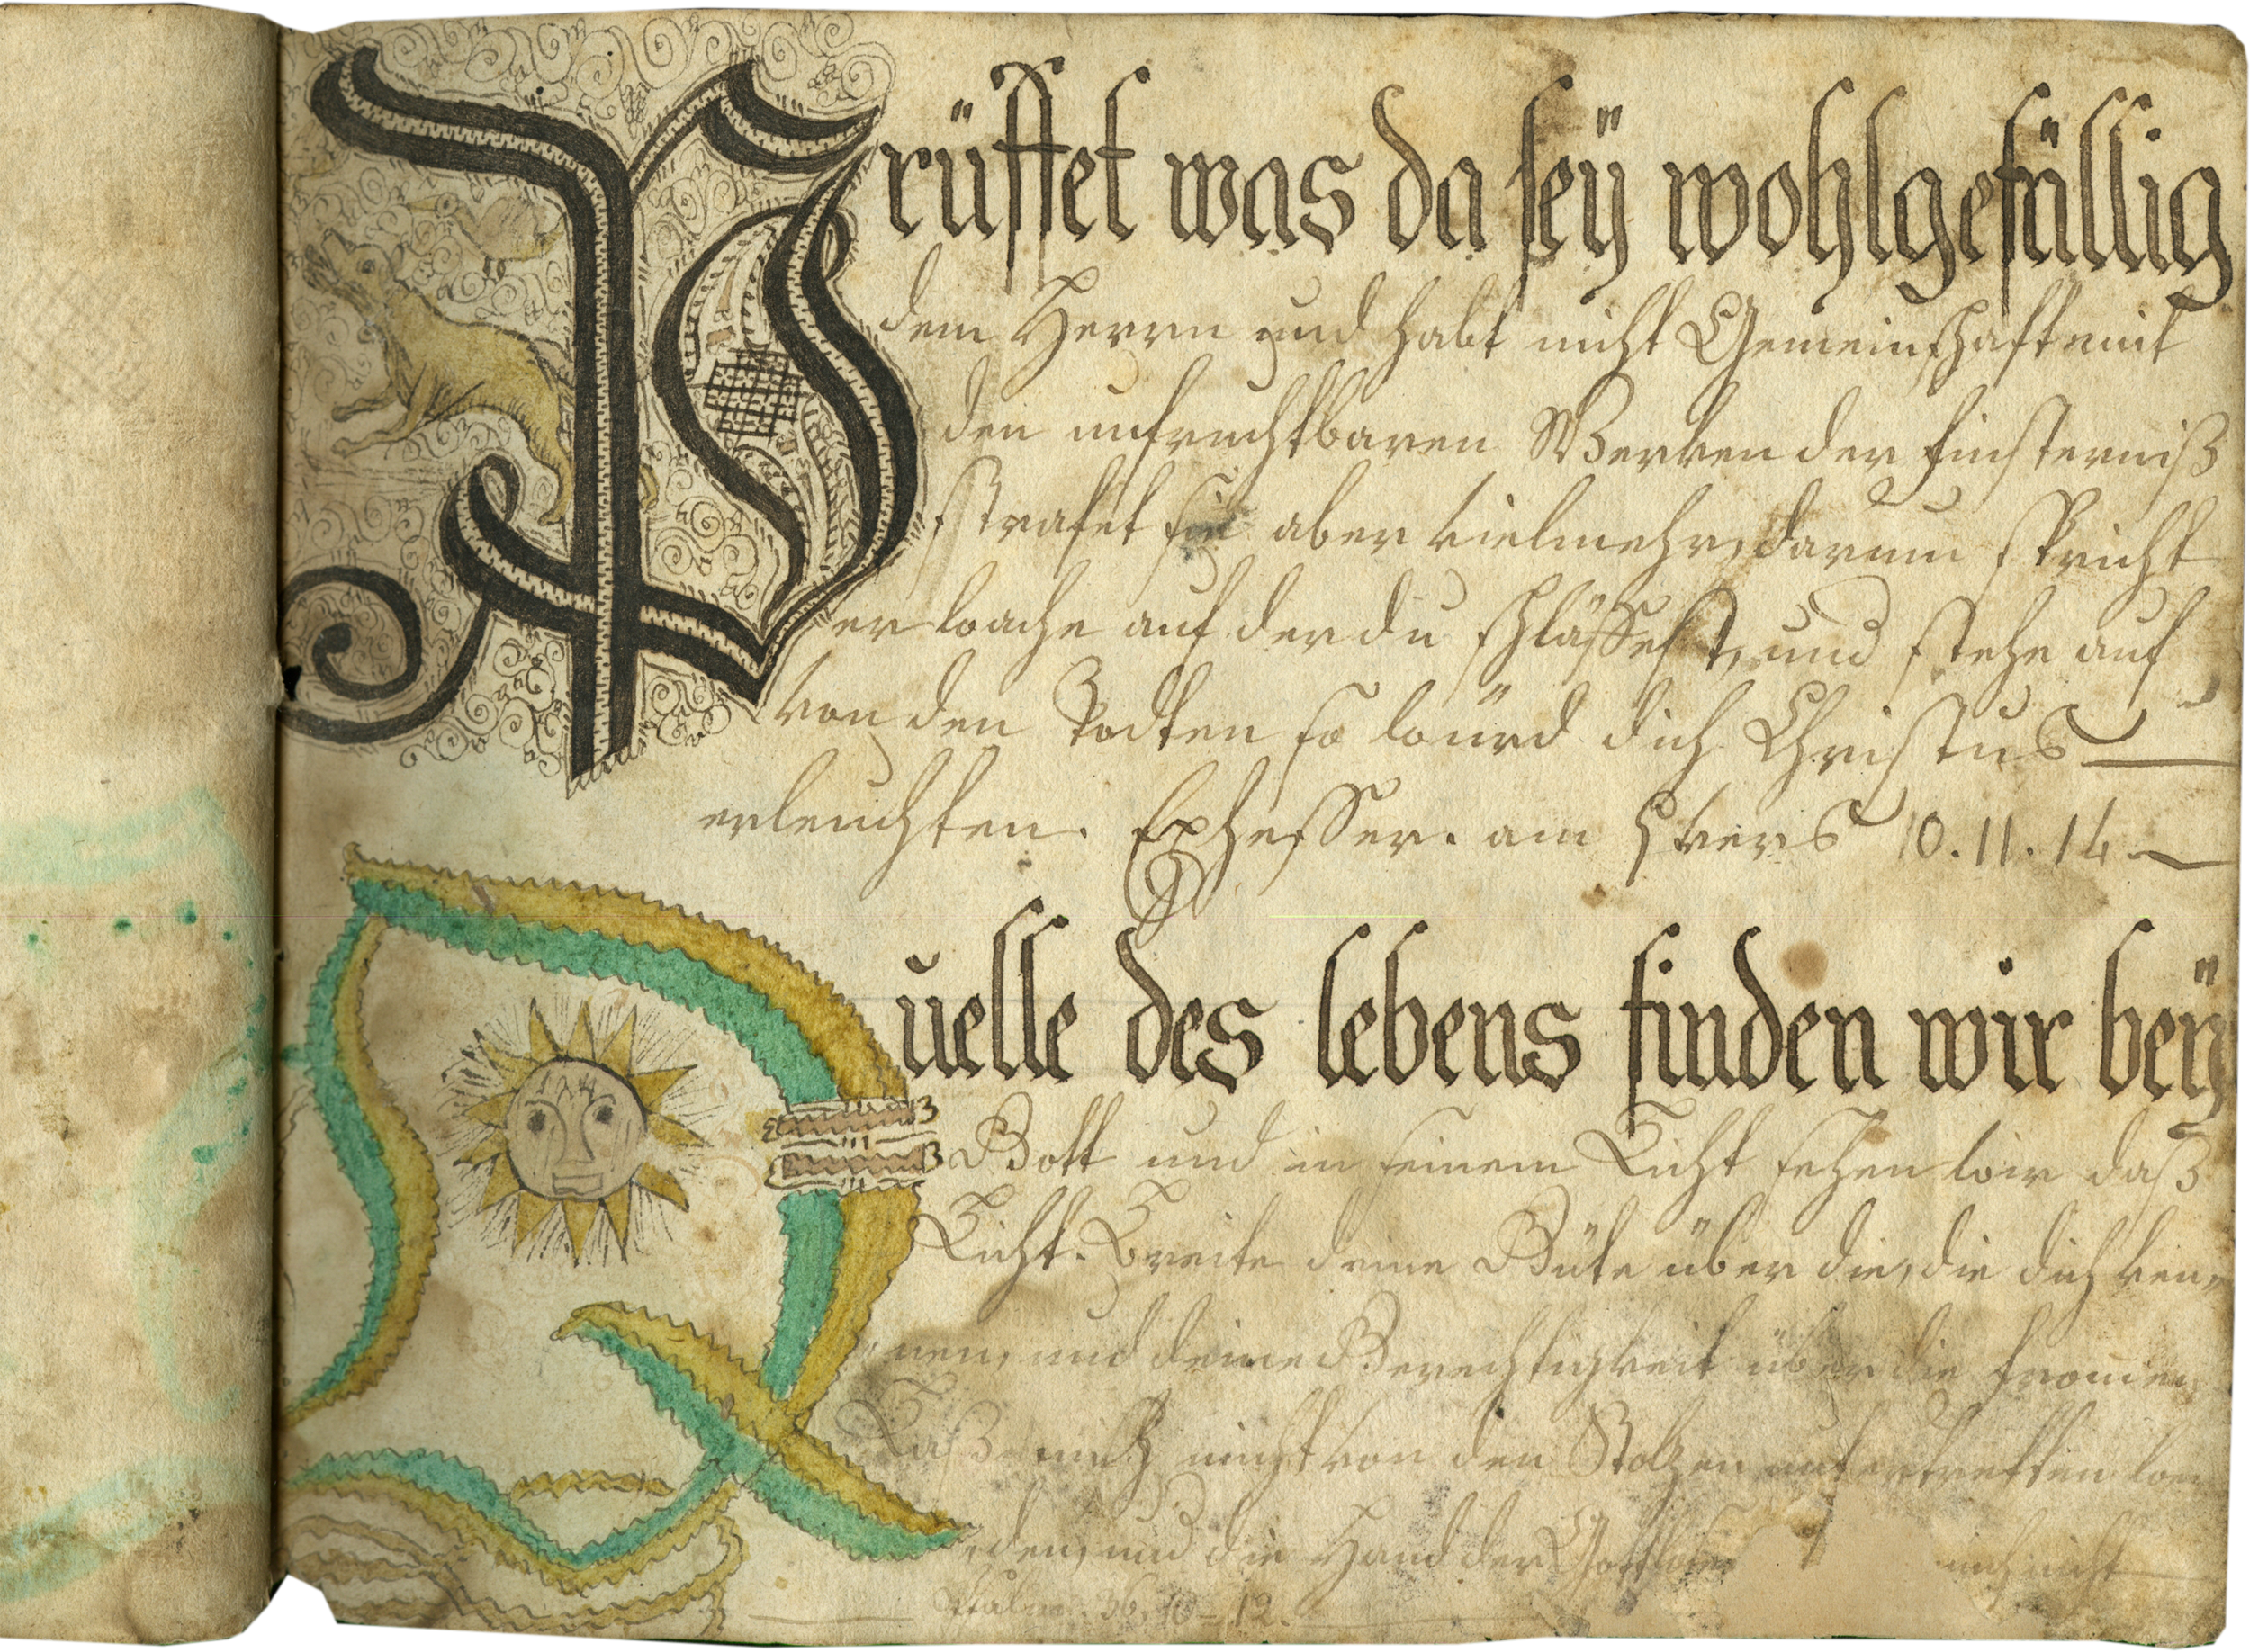 Prüffet was da seÿ wohlgefällig
dem Herrn und habt nicht Gemeinschaft mit
den unfruchtbaren Wercken der finsterniß
strafet sie aber vielmehr, darum spricht
er wache auf der du schläffest, und stehe auf
von den Todten so würd dich Christus
erleuchten. Ephesser. am 5 vers 10. 11. 14
Quelle des lebens finden wir beÿ
Gott und in seinem Licht sehen wir daß
Licht. Breite deine Güte über die, die dich ken,,
nen, und deine Gerechtigkeit über die fromen,
Laß mich nicht von den Stolzen untertretten wer
den, und die Hand der Gottlosen mich nicht
Psalm. 36, 10 - 12.